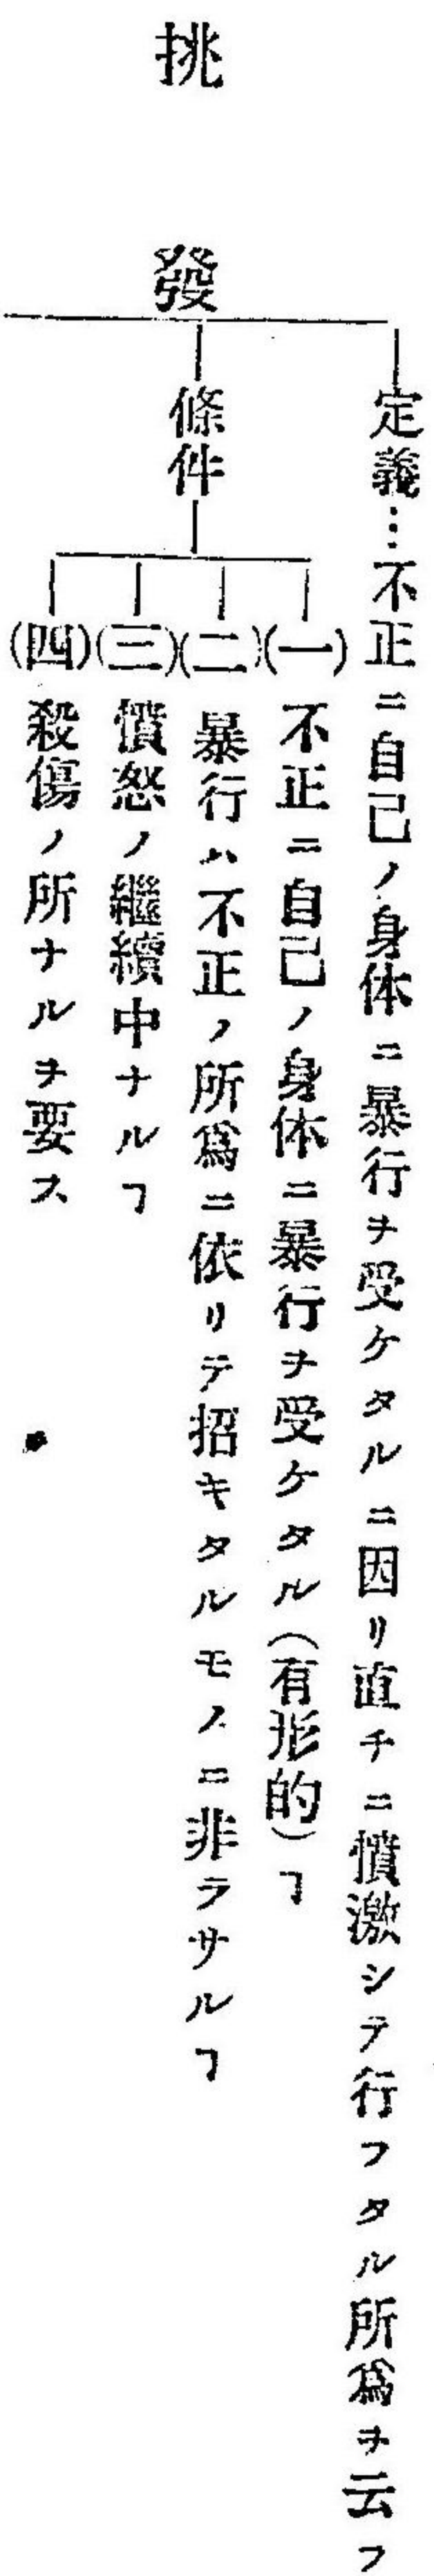 挑發
定義…不正ニ自己ノ身体ニ暴行ヲ受ケタルニ因リ直チニ憤激シテ行フタル所爲ヲ云フ
條件
(一)不正ニ自己ノ身体ニ暴行ヲ受ケタル(有形的)ヿ
(二)暴行ハ不正ノ所爲ニ依リテ招キタルモノニ非ラサルヿ
(三)憤怒ノ繼續中ナルヿ
(四)殺傷ノ所ナルヲ要ス